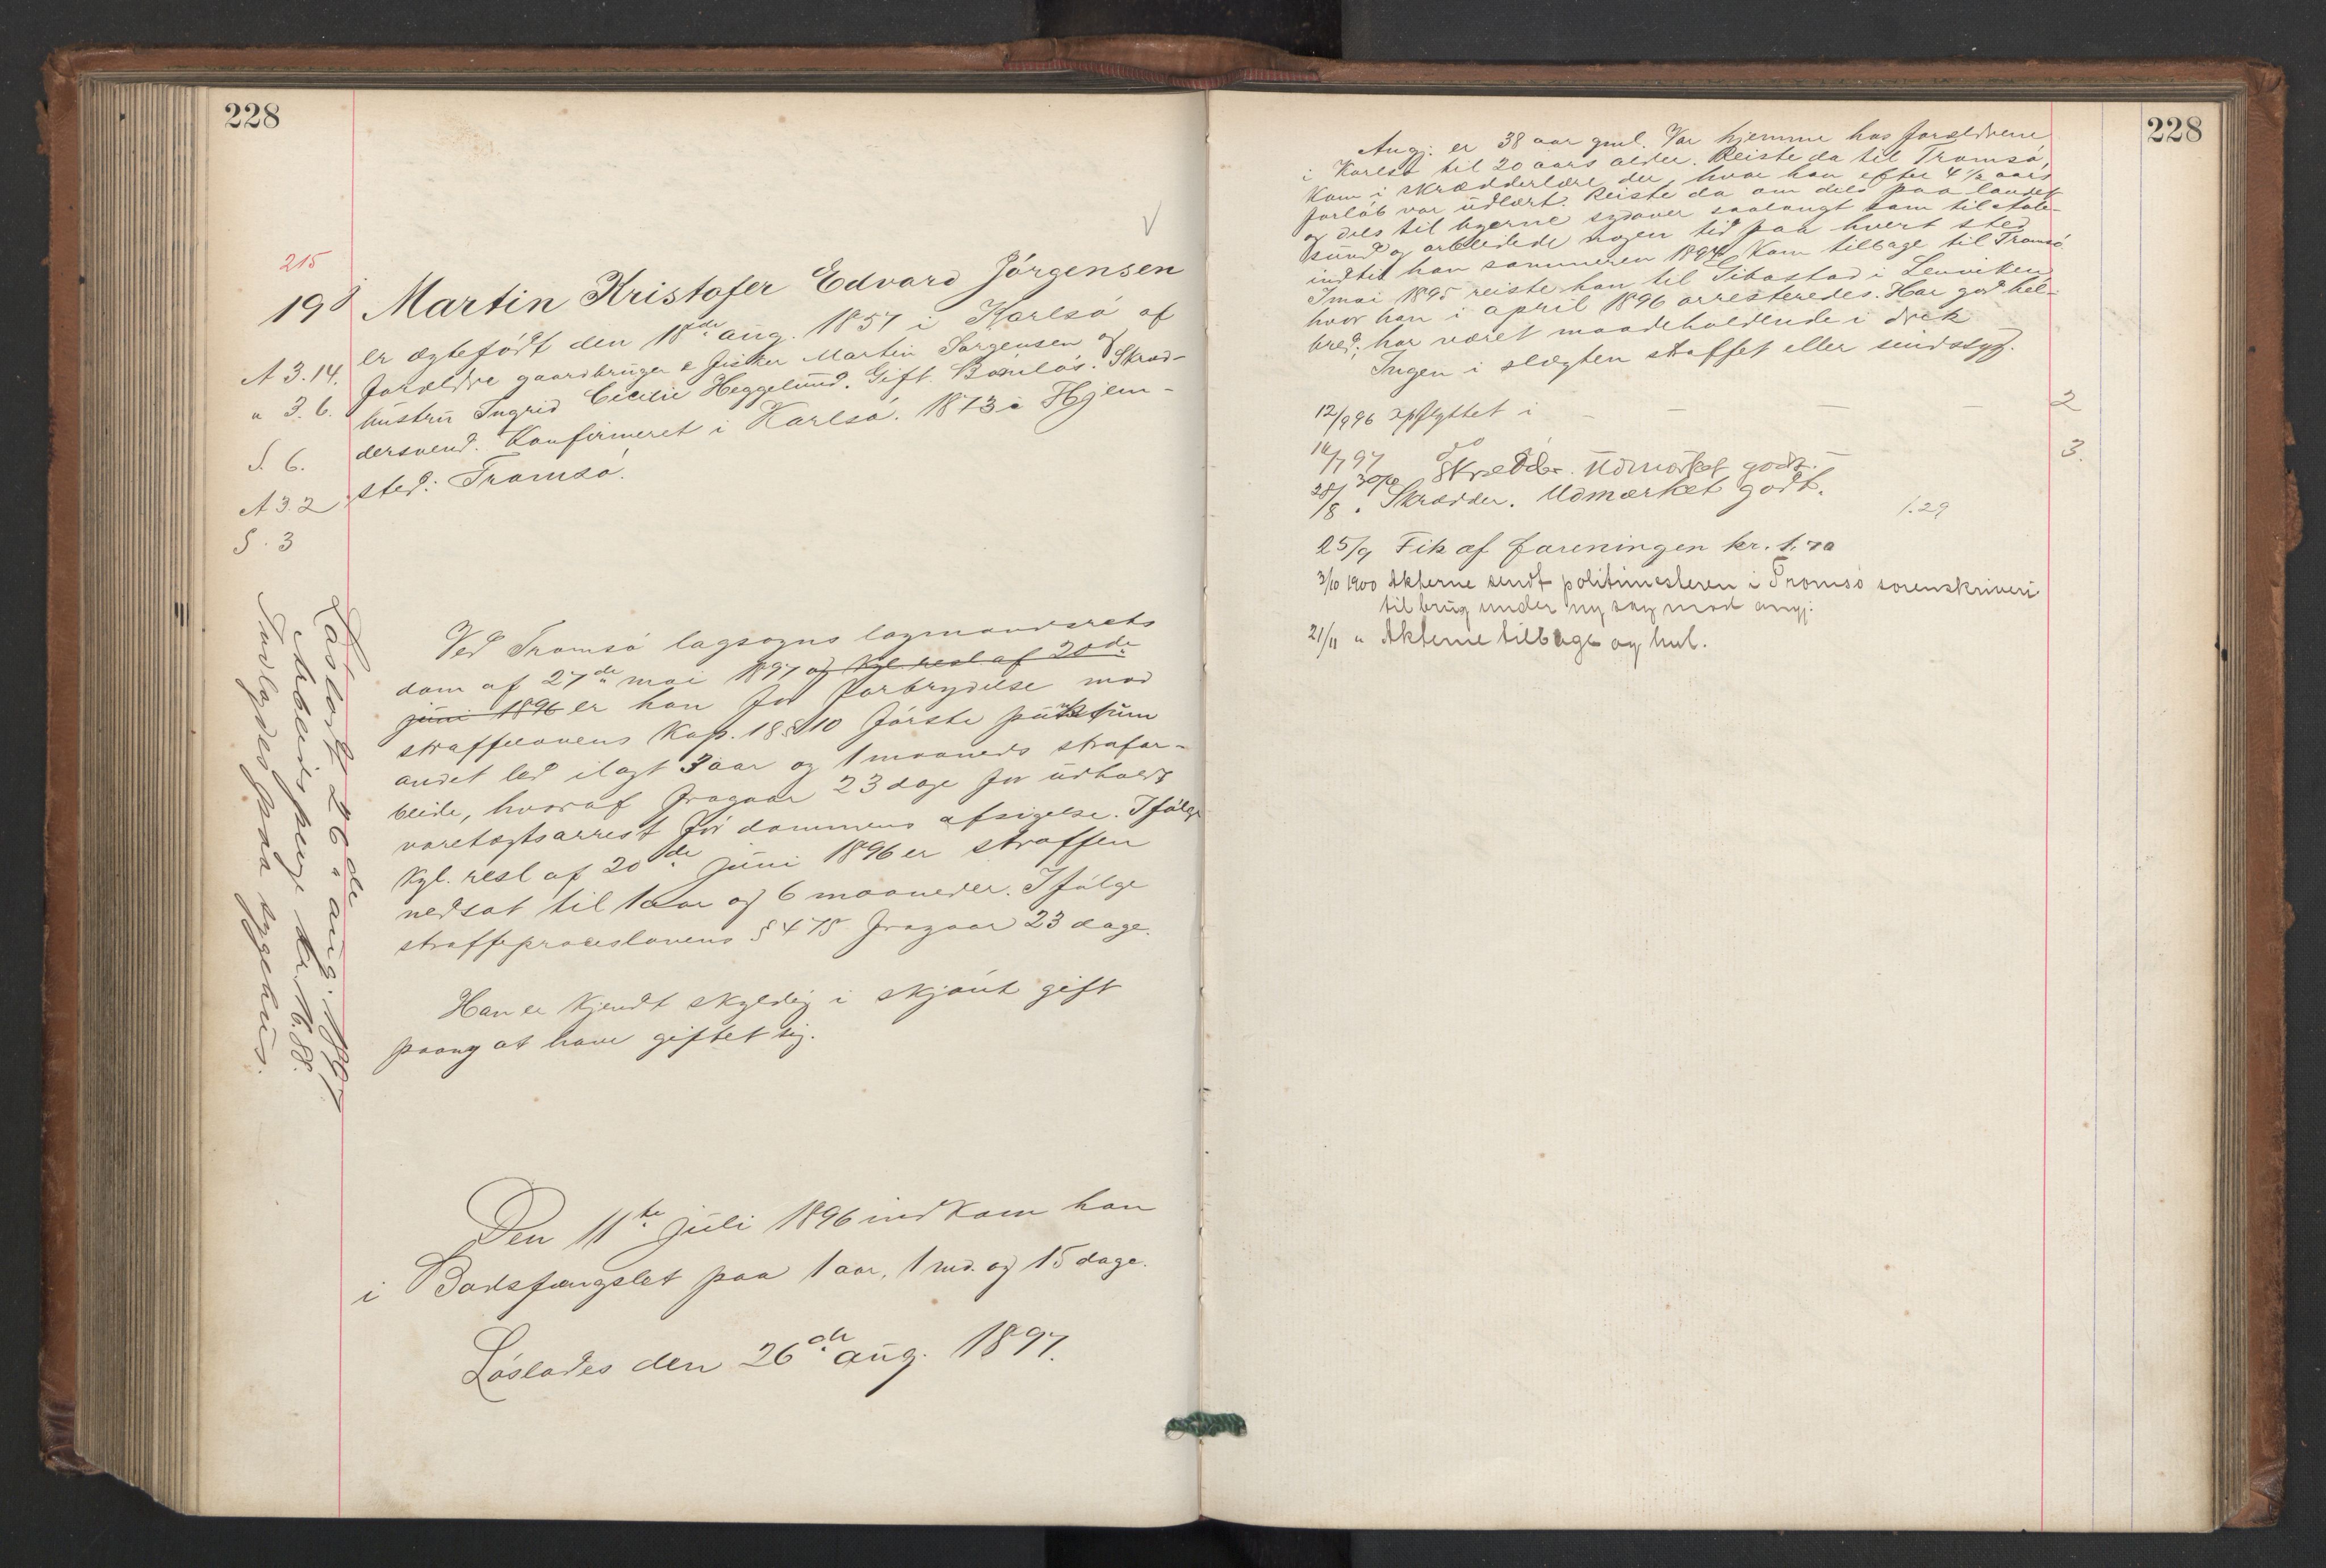 228
215
198 Martin Kristofer Edvard Jörgensen
er ægtefödt den 18de aug. 1857 i Karlsö af
A 3.14. forældre gaardbruger & fisker Martin Jörgensen og
" 3.6. hustru Ingrid Cecilie Heggelund. Gift. Barnlös. Skræd-
S. 6. dersvend. Konfirmeret i Karlsö. 1873. Hjem-
A 3.2 sted: Tromsö.
S. 3
Ved Tromsö lagsogns lagmandsrets
dom af 27de mai 1897 og Kgl resl af 20de
juni 1896 er han for forbrydelse mod
straffelovens Kap. 18 § 10 förste punktum
andet led ilagt 3 aar og 1 maaneds strafar-
beide, hvoraf fragaar 23 dage for udholdt
varetægtsarrest för dommens afsigelse. Ifölge
Kgl. resl af 20de juni 1896 er straffen
nedsat til 1 aar og 6 maaneder. Ifölge
straffeproceslovens § 475 fragaar 23 dage.
Han er kjendt skyldig i skjönt gift
paany at have giftet sig.
Den 11te juli 1896 indkom han
i Bodsfængslet paa 1 aar, 1 md. og 15 dage.
Löslades den 26de aug. 1897.
Lösladt 26de aug. 1897
Arbeidspenge kr. 16.88.
Indlagdes paa sygehus.
228
Angj. er 38 aar gml. Var hjemme hos forældrene
i Karlsö til 20 aars alder. Reiste da til Tromsö,
Kom i skrædderlære der, hvor han efter 4 1/2 aars
forlöb var udlært. Reiste da om dels paa landet
og dels til byerne sydover saalangt som til Aale-
sund og arbeidede nogen tid paa hvert sted
indtil han sommeren 1894 Kom tilbage til Tromsö
I mai 1895 reiste han til Gibostad i Lenviken
hvor han i april 1896 arresteredes. Har god hel-
bred; har været maadeholdende i drik
Ingen i slægten straffet eller sindssyg.
12/9 96 opflyttet i — — — — 2
14/7 97 do — 3.
30/7 Skrædder. Udmærket godt.
28/8 . Skrædder. Udmærket godt.
1.29
25/9 Fik af foreningen kr. 1.70
3/10 1900 Akterne sendt politimesteren i Tromsö sorenskriveri
til brug under ny sag mod angj.
21/11 " Akterne tilbage og hul.